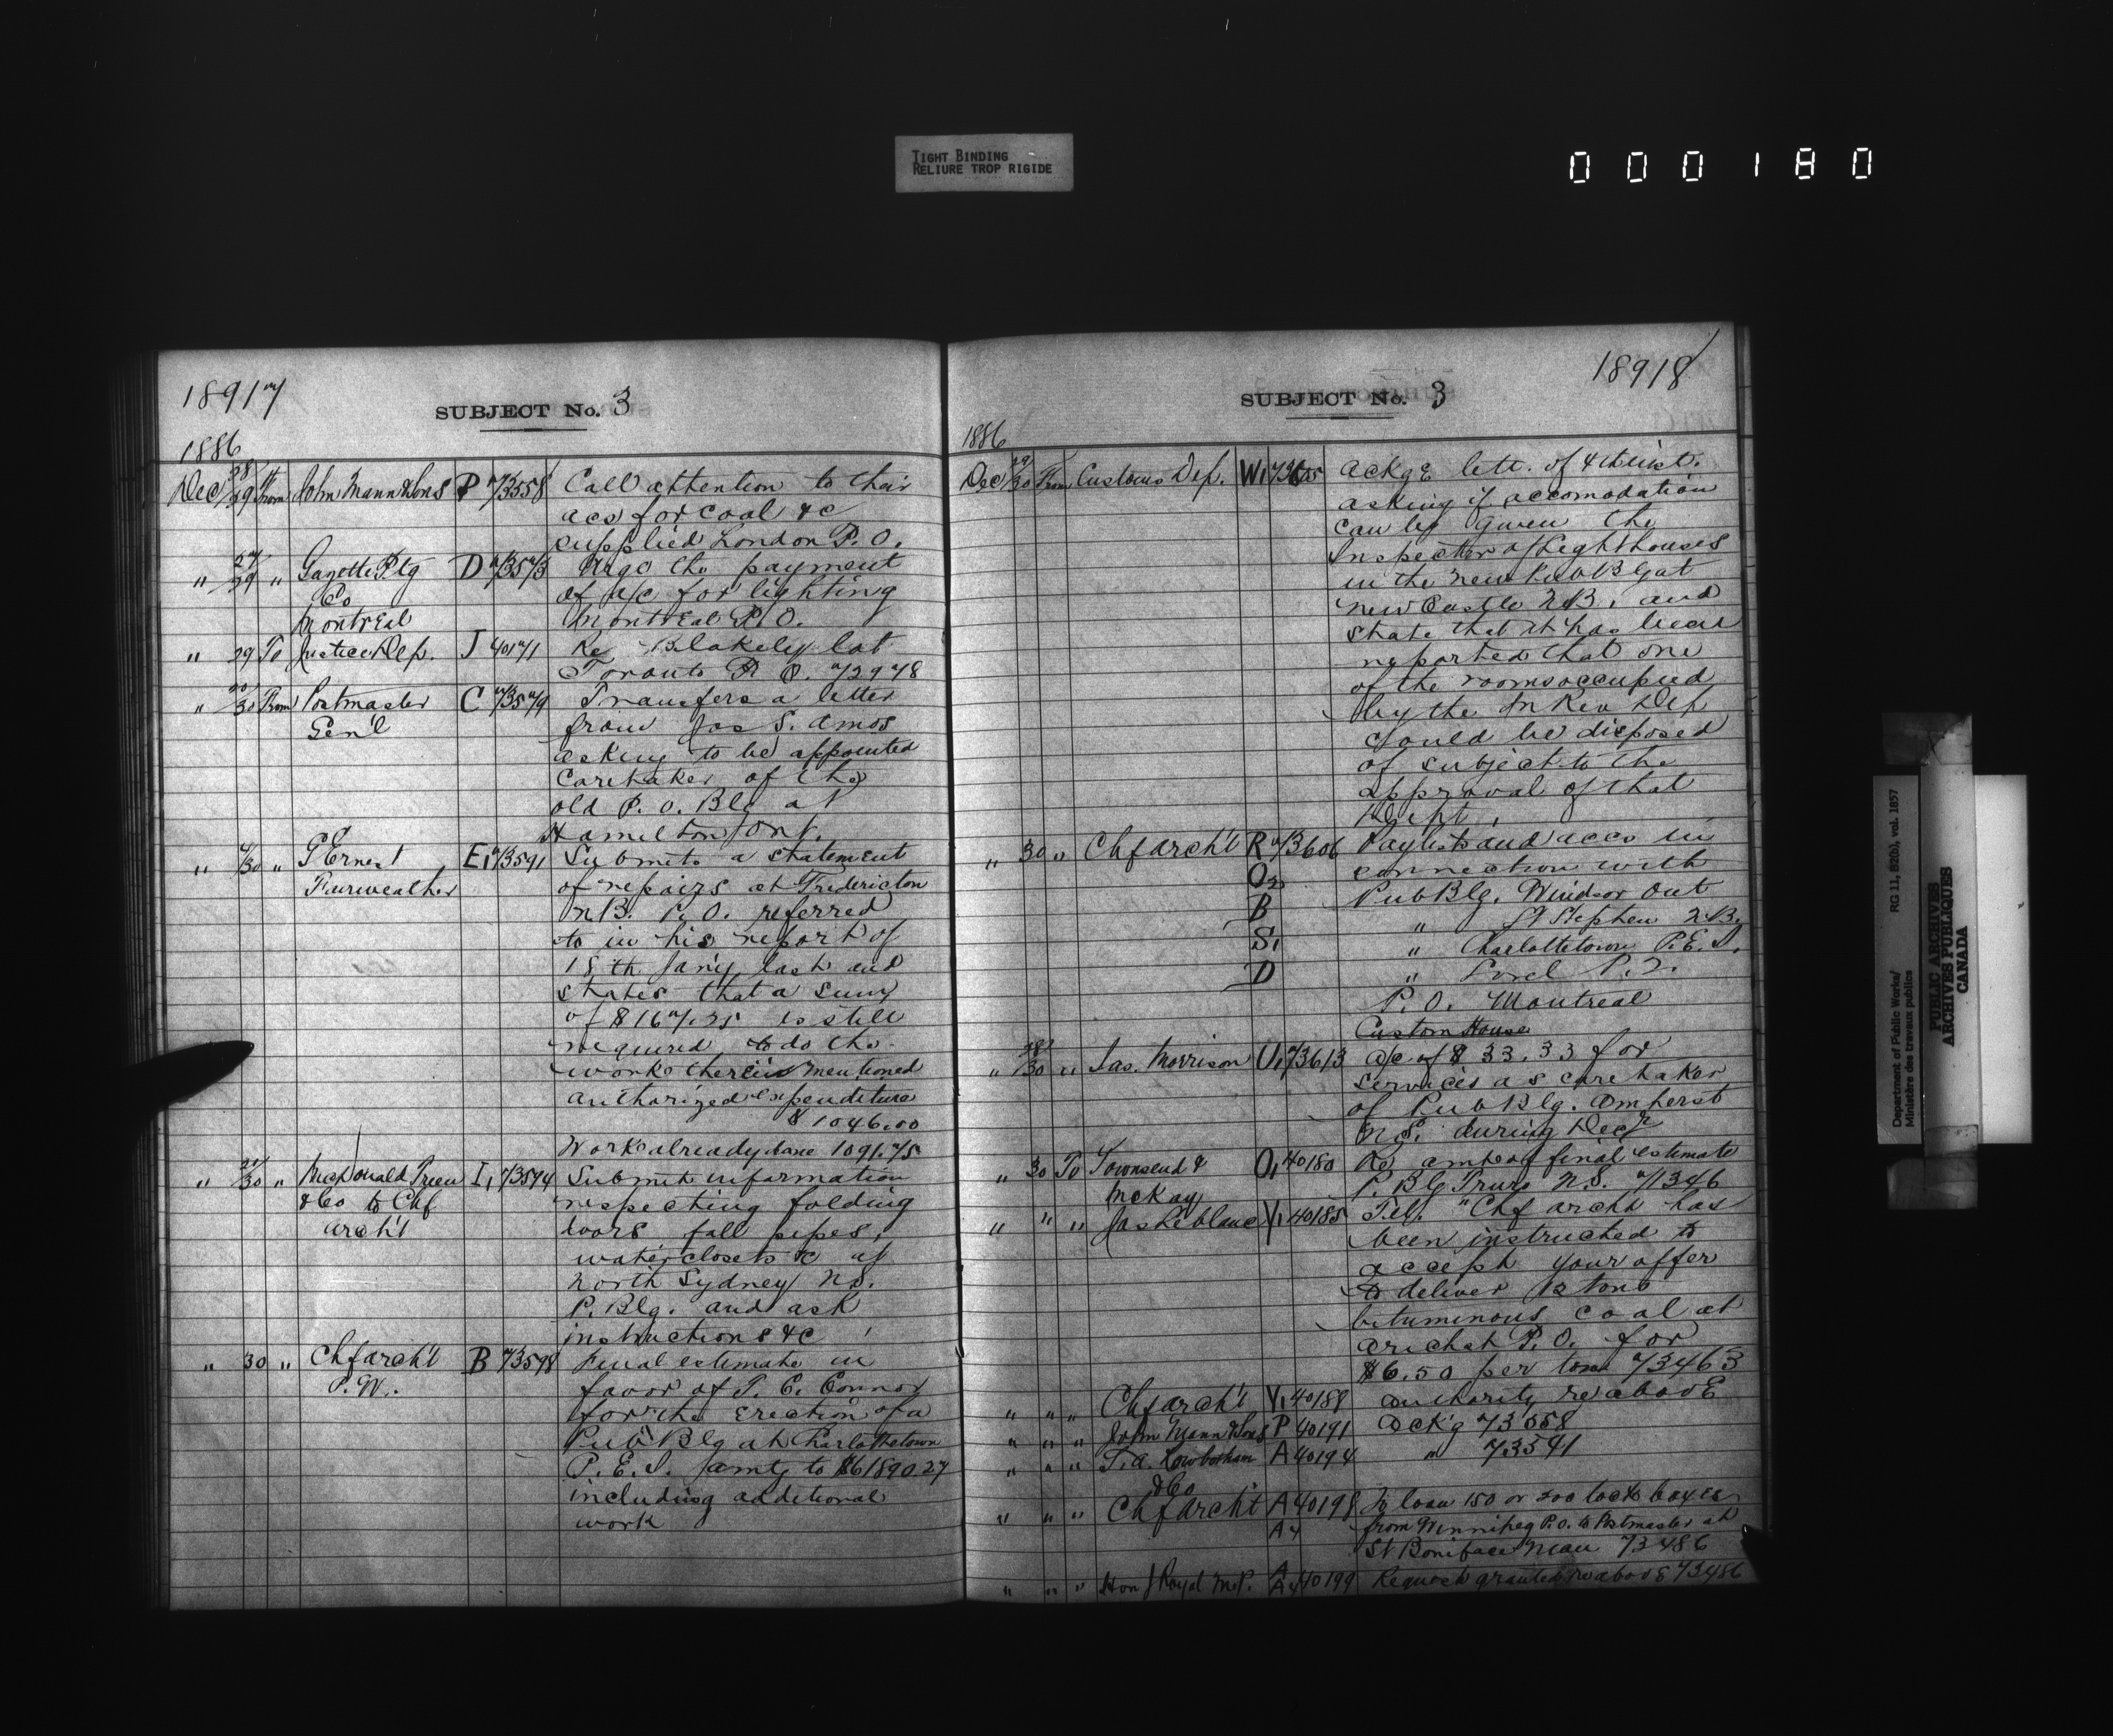 TIGHT BINDING
RELIURE TROP RIGIDE
000180
18917
SUBJECT No. 3
1886
Dec 28/29 From John Mann & Sons P 73558 Call attention to their
acs for coal &c
supplied London P.O.
" 27/29 " Gazette Ptg D 73573 Urge the payment
Co of a/c for lighting
Montreal Montreal P.O.
" 29 To Justice Dep. J 40171 Re Blakeley lot
Toronto P.O. 72978
" 30 From Postmaster C 73579 Transfers a letter
Gen'l from Jas S. Amos
asking to be appointed
Caretaker of the
old P.O. Blg at
Hamilton Ont.
" /30 " G Ernest E1 73591 Submits a statement
Fairweather of repairs at Fredericton
N.B. P.O. referred
to in his report of
18th Jan'y last and
states that a sum
of $167.25 is still
required to do the
work therein mentioned
authorized expenditure
$1046.00
Work already done 1091.75
" 21/30 " McDonald Treen I1 73594 Submit information
& Co to Chf respecting folding
arch't doors fall pipes,
waterclosets &c at
North Sydney N.S.
P. Blg. and ask
instructions &c
" 30 " Chf arch't B 73598 Final estimate in
P.W. favor of T. C. Connor
for the erection of a
Pub Blg at Charlottetown
P.E.I. amtg to $61890.27
including additional
work
18918
SUBJECT No. 3
1886
Dec 29/30 From Customs Dep. W1 73605 Ackge lett. of 4th inst.
asking if accomodation
can be given the
Inspector of Lighthouses
in the new Pub Blg at
New Castle N.B. and
state that it has been
reported that one
of the rooms occupied
by the In Rev Dep
could be disposed
of subject to the
approval of that
Dept.
" 30 " Chf arch't R 73606 Paylists and accs in
O2 connection with
B Pub Blg. Windsor Ont
" St Stephen N.B.
S1 " Charlottetown P.E.I.
D " Sorel P.Q.
P.O. Montreal
Custom House
" 28/30 " Jas. Morrison U1 73613 a/c of $33.33 for
services as caretaker
of Pub Blg. Amherst
N.S. during Decr
" 30 To Townsend & O1 40180 Re amt of final estimate
McKay P. Blg Truro N.S. 71346
" " " Jas Leblanc Y1 40185 Tel. "Chf archt has
been instructed to
accept your offer
to deliver 12 tons
bituminous coal at
Arichat P.O. for
$6.50 per ton 73463
" " " Chf arch't Y1 40188 authority re above
" " " John Mann & Sons P 40191 Ack'g 73558
" " " T. A. Rowbotham A 40194 " 73541
& Co
" " " Chf Archt A 40198 To loan 150 or 200 lock boxes
A4 from Winnipeg P.O. to Postmaster at
St Boniface Man 73486
" " " Hon J Royal M.P. A 40199 Request granted re above 73486
A4
Department of Public Works/ RG 11, B2(b), vol. 1857
Ministère des travaux publics
PUBLIC ARCHIVES
ARCHIVES PUBLIQUES
CANADA